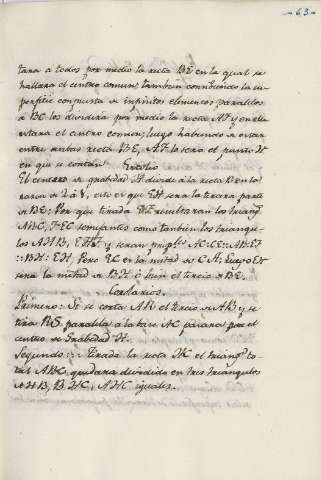 63
tara a todos por medio la recta BE en la qual se
hallara el centro comun; tambien concibiendo la su-
perficie compuesta de infinitos elementos paralelos
a BC los dividira por medio la recta AF y en ella
estara el centro comun; luego habiendo de estar
entre ambas rectas BE, AF lo sera el punto H
en que se cortan. Escolio
El centro de grabedad H divide a la recta BE en la
razon de 2 a 1, esto es que EH sera la tercera parte
de BE: Por que tirada FE resultaran los triang.
ABC, FEC semejantes como tambien los triangu-
los AHB, EHF y seran AC:CE::AB:EF
::BH:EH, Pero EC es la mitad de CA; luego EH
sera la mitad de BH ó bien el tercio de BE.
Corolarios.
Primero: Si se corta AR el tercio de AB y se
tira RS paralela a la base AC pasara por el
centro de Grabedad H.
Segundo: Tirada la recta HC el triang. to-
tal ABC, quedara dividido en tres triangulos
AHB, BHC, AHC iguales.